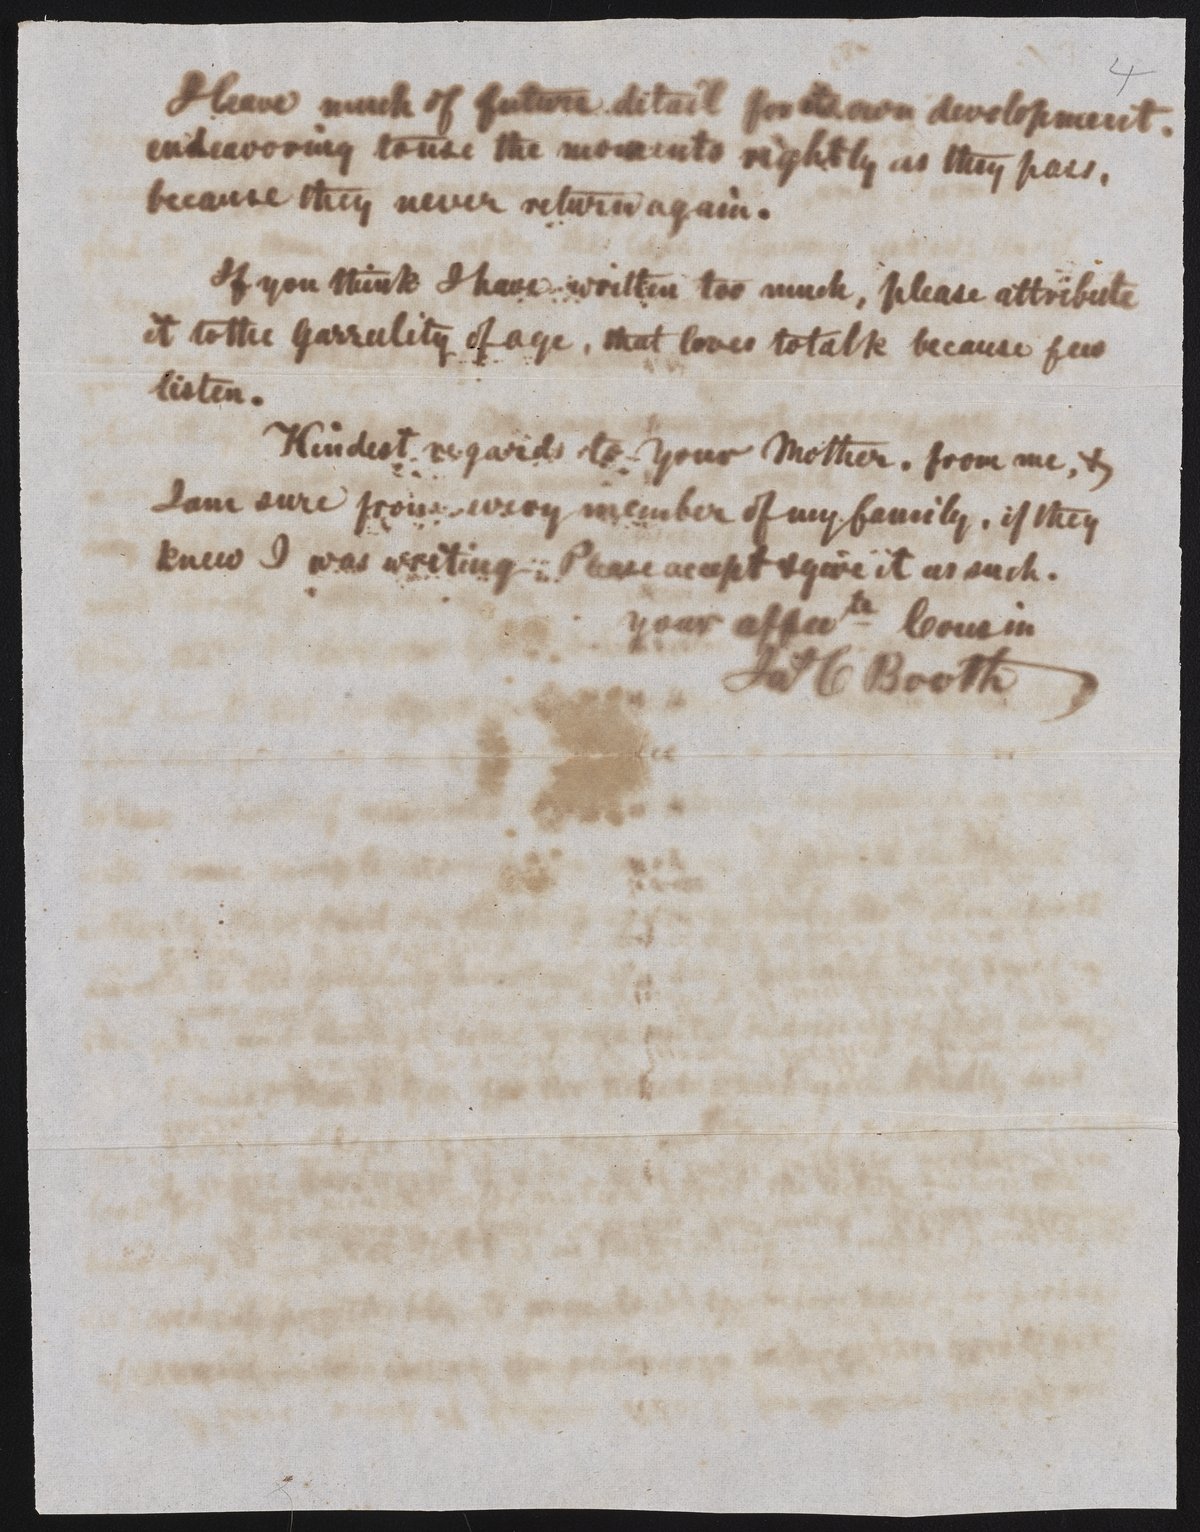 4
I leave much of future detail for its own development.
endeavoring to use the moments rightly as they pass,
because they never return again.
If you think I have written too much, please attribute
it to the garrulity of age, that loves to talk because few
listen.
Kindest regards to your Mother. from me, &
I am sure from every member of my family, if they
knew I was writing. Please accept & give it as such.
your affec^te Cousin
Jas C Booth